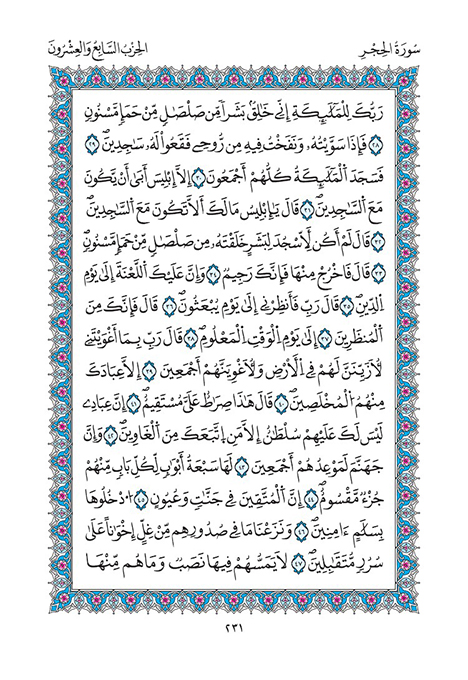 سُورَةُ الحِجْرِ
الحِزْبُ السَّابِعُ وَالعِشْرُونَ
رَبُّكَ لِلْمَلَٰٓئِكَةِ إِنِّي خَٰلِقُۢ بَشَرٗا مِّن صَلْصَٰلٖ مِّنْ حَمَإٖ مَّسْنُونٖ
٢٨ فَإِذَا سَوَّيْتُهُۥ وَنَفَخْتُ فِيهِ مِن رُّوحِي فَقَعُوا۟ لَهُۥ سَٰجِدِينَ ٢٩
فَسَجَدَ الْمَلَٰٓئِكَةُ كُلُّهُمْ أَجْمَعُونَ ٣٠ إِلَّآ إِبْلِيسَ أَبَىٰٓ أَنْ يَكُونَ
مَعَ السَّٰجِدِينَ ٣١ قَالَ يَٰٓإِبْلِيسُ مَا لَكَ أَلَّا تَكُونَ مَعَ السَّٰجِدِينَ
٣٢ قَالَ لَمْ أَكُن لِّأَسْجُدَ لِبَشَرٍ خَلَقْتَهُۥ مِن صَلْصَٰلٖ مِّنْ حَمَإٖ مَّسْنُونٖ
٣٣ قَالَ فَاخْرُجْ مِنْهَا فَإِنَّكَ رَجِيمٞ ٣٤ وَإِنَّ عَلَيْكَ اللَّعْنَةَ إِلَىٰ يَوْمِ
الدِّينِ ٣٥ قَالَ رَبِّ فَأَنظِرْنِيٓ إِلَىٰ يَوْمِ يُبْعَثُونَ ٣٦ قَالَ فَإِنَّكَ مِنَ
الْمُنظَرِينَ ٣٧ إِلَىٰ يَوْمِ الْوَقْتِ الْمَعْلُومِ ٣٨ قَالَ رَبِّ بِمَآ أَغْوَيْتَنِي
لَأُزَيِّنَنَّ لَهُمْ فِي الْأَرْضِ وَلَأُغْوِيَنَّهُمْ أَجْمَعِينَ ٣٩ إِلَّا عِبَادَكَ
مِنْهُمُ الْمُخْلَصِينَ ٤٠ قَالَ هَٰذَا صِرَٰطٌ عَلَيَّ مُسْتَقِيمٌ ٤١ إِنَّ عِبَادِي
لَيْسَ لَكَ عَلَيْهِمْ سُلْطَٰنٌ إِلَّا مَنِ اتَّبَعَكَ مِنَ الْغَاوِينَ ٤٢ وَإِنَّ
جَهَنَّمَ لَمَوْعِدُهُمْ أَجْمَعِينَ ٤٣ لَهَا سَبْعَةُ أَبْوَٰبٖ لِّكُلِّ بَابٖ مِّنْهُمْ
جُزْءٞ مَّقْسُومٌ ٤٤ إِنَّ الْمُتَّقِينَ فِي جَنَّٰتٖ وَعُيُونٍ ٤٥ ادْخُلُوهَا
بِسَلَٰمٍ ءَامِنِينَ ٤٦ وَنَزَعْنَا مَا فِي صُدُورِهِم مِّنْ غِلٍّ إِخْوَٰنًا عَلَىٰ
سُرُرٖ مُّتَقَٰبِلِينَ ٤٧ لَا يَمَسُّهُمْ فِيهَا نَصَبٞ وَمَا هُم مِّنْهَا
٢٣١